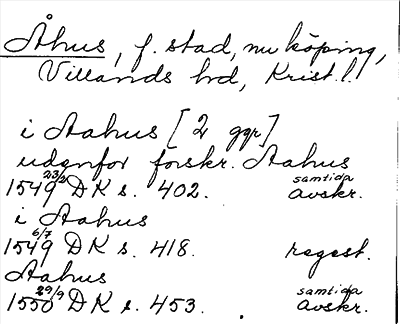 Åhus, f. stad, nu köping,
Villands hd, Krist. l.
i Aahus [2 ggr]
udenfor forskr. Aahus
1549 23/2 DK s. 402. samtida avskr.
i Aahus
1549 6/7 DK s. 418. regest.
Aahus
1550 29/9 DK s. 453. samtida avskr.